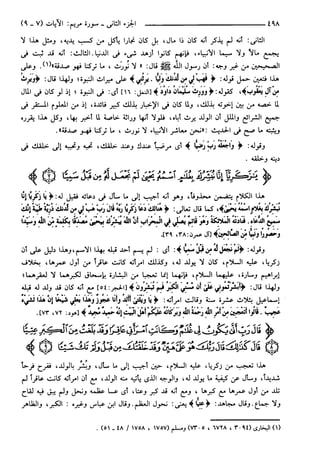 ٤٩٨ الجزء الثاني - سورة مريم: الآيات (٧ - ٩)
الثاني: أنه لم يذكر أنه كان ذا مال، بل كان نجاراً يأكل من كسب يديه، ومثل هذا لا
يجمع مالاً ولا سيما الأنبياء، فإنهم كانوا أزهد شيء في الدنيا. الثالث: أنه قد ثبت في
الصحيحين من غير وجه: أن رسول الله ﷺ قال: «لا نُورَث، ما تركنا فهو صدقة»(١). وعلى
هذا فتعين حمل قوله: ﴿فَهَبْ لِي مِن لَّدُنكَ وَلِيًّا ۝ يَرِثُنِي﴾ على ميراث النبوة؛ ولهذا قال: ﴿وَيَرِثُ
مِنْ آلِ يَعْقُوبَ﴾، كقوله: ﴿وَوَرِثَ سُلَيْمَانُ دَاوُودَ﴾ [النمل: ١٦] أي: في النبوة؛ إذ لو كان في المال
لما خصه من بين إخوته بذلك، ولما كان في الإخبار بذلك كبير فائدة، إذ من المعلوم المستقر في
جميع الشرائع والملل أن الولد يرث أباه، فلولا أنها وراثة خاصة لما أخبر بها، وكل هذا يقرره
ويثبته ما صح في الحديث: «نحن معاشر الأنبياء لا نورث، ما تركنا فهو صدقة».
وقوله: ﴿وَاجْعَلْهُ رَبِّ رَضِيًّا﴾ أي مرضياً عندك وعند خلقك، تحبه وتحببه إلى خلقك في
دينه وخلقه.
هذا الكلام يتضمن محذوفاً، وهو أنه أجيب إلى ما سأل في دعائه فقيل له: ﴿يَا زَكَرِيَّا إِنَّا
نُبَشِّرُكَ بِغُلَامٍ اسْمُهُ يَحْيَىٰ﴾، كما قال تعالى: ﴿هُنَالِكَ دَعَا زَكَرِيَّا رَبَّهُ قَالَ رَبِّ هَبْ لِي مِن لَّدُنكَ ذُرِّيَّةً طَيِّبَةً إِنَّكَ
سَمِيعُ الدُّعَاءِ ۝ فَنَادَتْهُ الْمَلَائِكَةُ وَهُوَ قَائِمٌ يُصَلِّي فِي الْمِحْرَابِ أَنَّ اللَّهَ يُبَشِّرُكَ بِيَحْيَىٰ مُصَدِّقًا بِكَلِمَةٍ مِّنَ اللَّهِ وَسَيِّدًا
وَحَصُورًا وَنَبِيًّا مِّنَ الصَّالِحِينَ﴾ [آل عمران: ٣٨، ٣٩].
وقوله: ﴿لَمْ نَجْعَل لَّهُ مِن قَبْلُ سَمِيًّا﴾: أي: لم يسم أحد قبله بهذا الاسم، وهذا دليل على أن
زكريا، عليه السلام، كان لا يولد له، وكذلك امرأته كانت عاقراً من أول عمرها، بخلاف
إبراهيم وسارة، عليهما السلام، فإنهما إنما تعجبا من البشارة بإسحاق لكبرهما لا لعقرهما؛
ولهذا قال: ﴿أَبَشَّرْتُمُونِي عَلَىٰ أَن مَّسَّنِيَ الْكِبَرُ فَبِمَ تُبَشِّرُونَ﴾ [الحجر: ٥٤] مع أنه كان قد ولد له قبله
إسماعيل بثلاث عشرة سنة وقالت امرأته: ﴿يَا وَيْلَتَىٰ أَأَلِدُ وَأَنَا عَجُوزٌ وَهَٰذَا بَعْلِي شَيْخًا إِنَّ هَٰذَا لَشَيْءٌ
عَجِيبٌ ۝ قَالُوا أَتَعْجَبِينَ مِنْ أَمْرِ اللَّهِ رَحْمَتُ اللَّهِ وَبَرَكَاتُهُ عَلَيْكُمْ أَهْلَ الْبَيْتِ إِنَّهُ حَمِيدٌ مَّجِيدٌ﴾ [هود: ٧٢، ٧٣].
هذا تعجب من زكريا، عليه السلام، حين أجيب إلى ما سأل، وبُشِّر بالولد، ففرح فرحاً
شديداً، وسأل عن كيفية ما يولد له، والوجه الذي يأتيه منه الولد، مع أن امرأته كانت عاقراً لم
تلد من أول عمرها مع كبرها، ومع أنه قد كبر وعتا، أي عسا عظمه ونحل ولم يبق فيه لقاح
ولا جماع. وقال مجاهد: ﴿عِتِيًّا﴾ يعني: نحول العظم. وقال ابن عباس وغيره: الكبر، والظاهر
(١) البخاري (٣٠٩٤، ٦٧٢٨، ٧٣٠٥) ومسلم (١٧٥٧/ ٤٨ - ٥١).